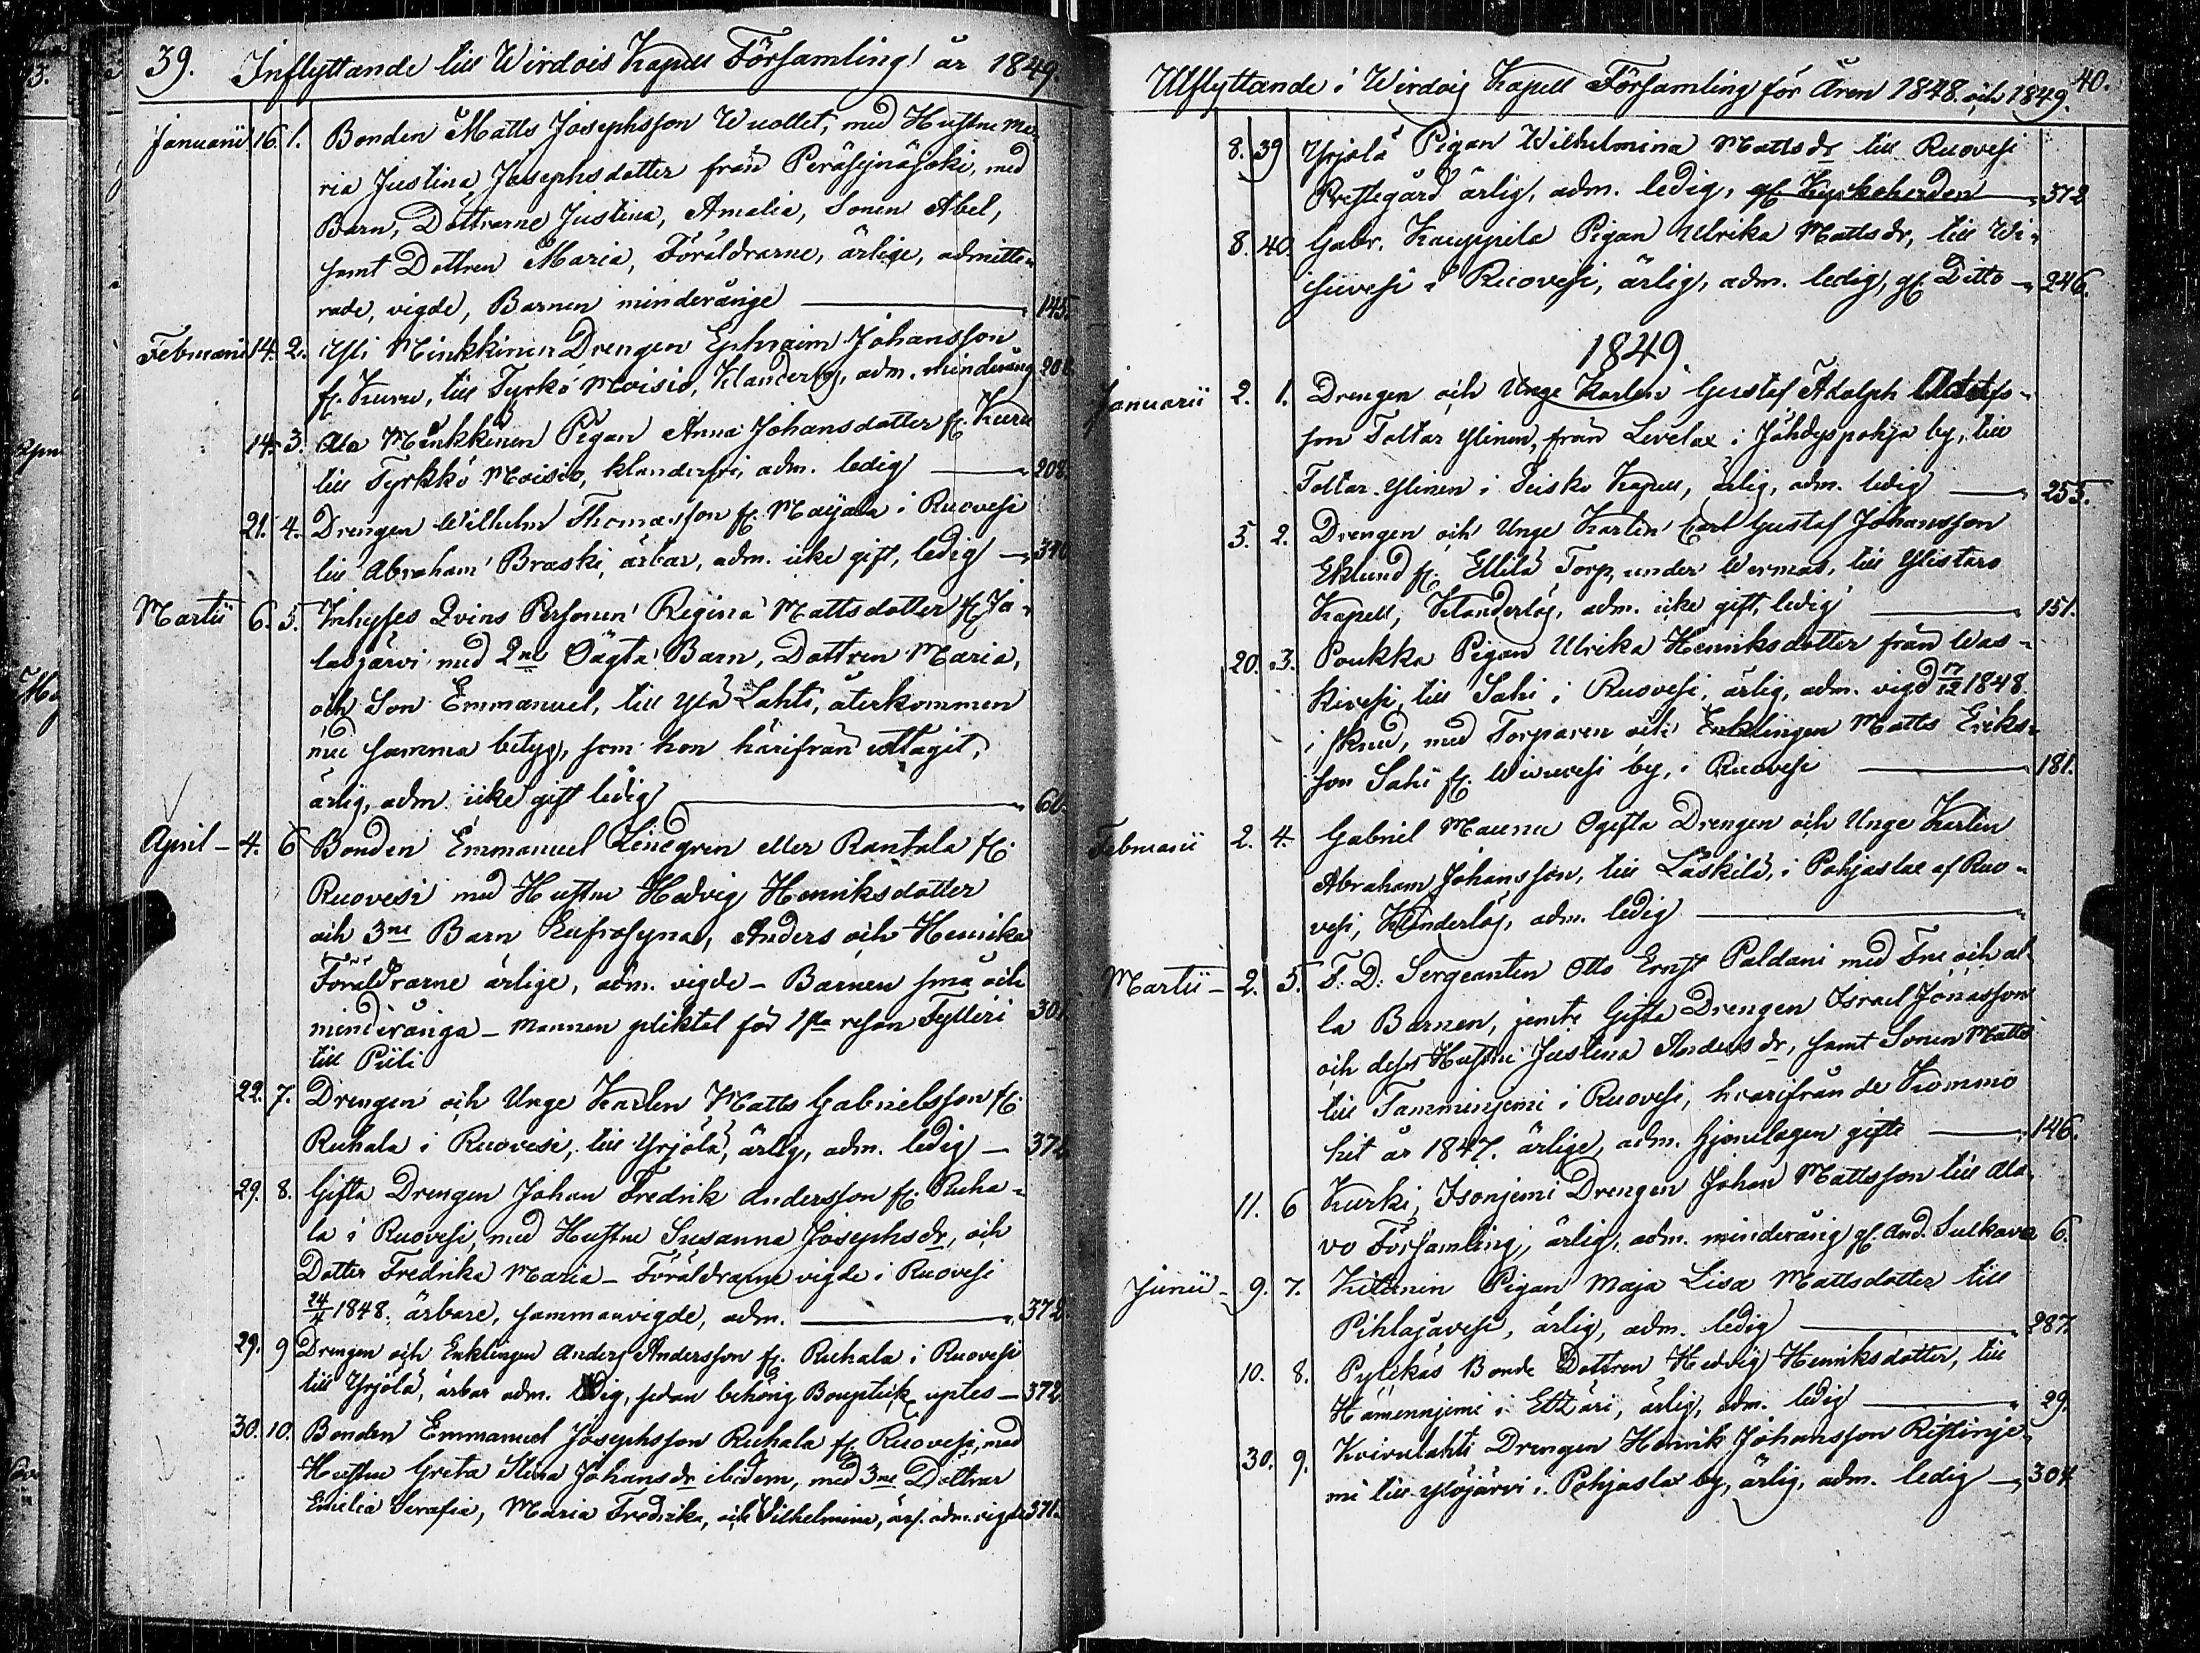 39. Inflyttande till Wirdois Kapell Församling år 1849.
Januarii 16. 1. Bonden Matts Josephsson Wuollet, med Hustru Ma-
ria Justina Josephsdotter från Peräsejnäjoki, med
Barn, Döttrarne Justina, Amalia, Sonen Abel,
samt Dottren Maria, Föräldrarne, ärlige, admitte-
rade, vigde, Barnen minderånige 145.
Februarii 14. 2. Yli Minkkinen Drengen Ephraim Johansson
fr. Kuru, till Tyrkö Moisio, Klanderlög, adm. minderång 208.
14. 3. Ala Minkkinen Pigan Anna Johansdotter fr. Kuru
till Tyrkkö Moisio, klanderfri, adm. ledig 208.
21. 4. Drengen Wilhelm Thomasson fr. Mayala i Ruovesi
till Abraham Braski, ärbar, adm. icke gift, ledig
Martii 6. 5. Inhyses Qvins Personen Regina Mattsdotter fr. Ja-
lasjärvi med 2ne Oägta Barn, Dottren Maria,
och Son Emmanuel, till Ylä Lahti, återkommen
med samma betyg, som hon härifrån uttagit,
ärlig, adm. icke gift ledig
April 4. 6 Bonden Emmanuel Lindgren eller Rantala fr.
Ruovesi med Hustru Hedvig Henriksdotter
och 3ne Barn Eufrosyna, Anders och Henrika
Föräldrarne ärlige, adm. vigde - Barnen små och
minderåniga - Mannen pliktat för 1sta resan Fylleri 301
till Piili
22. 7. Drengen och Unge Karlen Matts Gabrielsson fr.
Ruhala i Ruovesi, till Yrjölä, ärlig, adm. ledig 372
29. 8. Gifta Drengen Johan Fredrik Andersson fr. Ruha-
la i Ruovesi, med Hustru Susanna Josephsdr, och
Dotter Fredrika Maria - Föräldrarne vigde i Ruovesi
24/4 1848. ärbare, sammanvigde, adm. 372.
29. 9 Drengen och Enklingen Anders Andersson fr. Ruhala i Ruovesi
till Yrjölä, ärbar adm. ledig, sedan behörig Bouptek. uptes 372
30. 10. Bonden Emmanuel Josephsson Ruhala fr. Ruovesi, med
Hustru Greta Stina Johansdr ibidem, med 3ne Döttrar
Emelia Serafia, Maria Fredrika, och Wilhelmina, ärl. adm. vigde 371.
Utflyttande i Wirdois Kapell Församling för Åren 1848. och 1849. 40.
8. 39 Yrjölä Pigan Wilhelmina Mattsdr till Ruovesi
Prestegård ärlig, adm. ledig, gf. Kyrkoherden 372
8. 40. Gabr. Kauppila Pigan Ulrika Mattsdr, till Wi-
suvesi i Ruovesi, ärlig, adm. ledig, gf. Ditto 246.
1849
Januarii 2. 1. Drengen och Unge Karlen Gustaf Adolph
son Toltar Ylinen, från Levelax i Jähdyspohja by, till
Toltar Ylinen i Teisko Kapell, ärlig, adm. ledig 255.
5. 2. Drengen och Unge Karlen Carl Gustaf Johansson
Eklund fr. Ellilä Torp, under Wermas, till Ylistaro
Kapell, Klanderlög, adm. icke gift, ledig 151.
20. 3. Poukka Pigan Ulrika Henriksdotter från Was-
kivesi, till Sahi i Ruovesi, ärlig, adm. vigd 17/12 1848
i Kuru, med Torparen och Enklingen Matts Eriks-
son Sahi fr. Wisuvesi by, i Ruovesi 181.
Februarii 2. 4. Gabriel Maunu Ogifta Drengen och Unge Karlen
Abraham Johansson, till Läskilä, i Pohjaslax af Ruo-
vesi, Klanderlög, adm. ledig
Martii 2. 5. F. D. Sergeanten Otto Ernst Paldani med Fru och al-
la Barnen, jemte Gifta Drengen Israel Jonasson
och dess Hustru Justina Andersdr, samt Sonen Matts
till Tamminjemi i Ruovesi, hvarifrån de Kommo
hit år 1847. ärlige, adm. Hjonelagen gifte 146.
11. 6 Kurki, Isonjemi Drengen Johan Mattsson till Ala-
vo Församling, ärlig, adm. minderånig gf. And. Sulkava 6.
Junii 9. 7. Kitunen Pigan Maja Lisa Mattsdotter till
Pihlajavesi, ärlig, adm. ledig 287
10. 8. Pylkäs Bonde Dottren Hedvig Henriksdotter, till
Hämennjemi i Etzäri, ärlig, adm. ledig 29.
30. 9. Koivulahti Drengen Henrik Johansson Ristinje-
mi till Ylöjärvi i Pohjaslax by, ärlig, adm. ledig 304